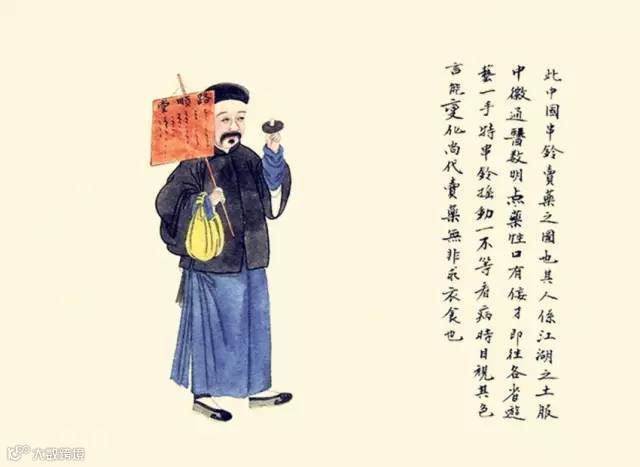 路順堂
此中國串鈴賣藥之圖也其人係江湖之士服
中徽通醫数明点藥性口有倭才即往各省遊
藝一手持串鈴摇動一不等看病時目視其色
言能变化尚代賣藥無非求衣食也
大数跨境